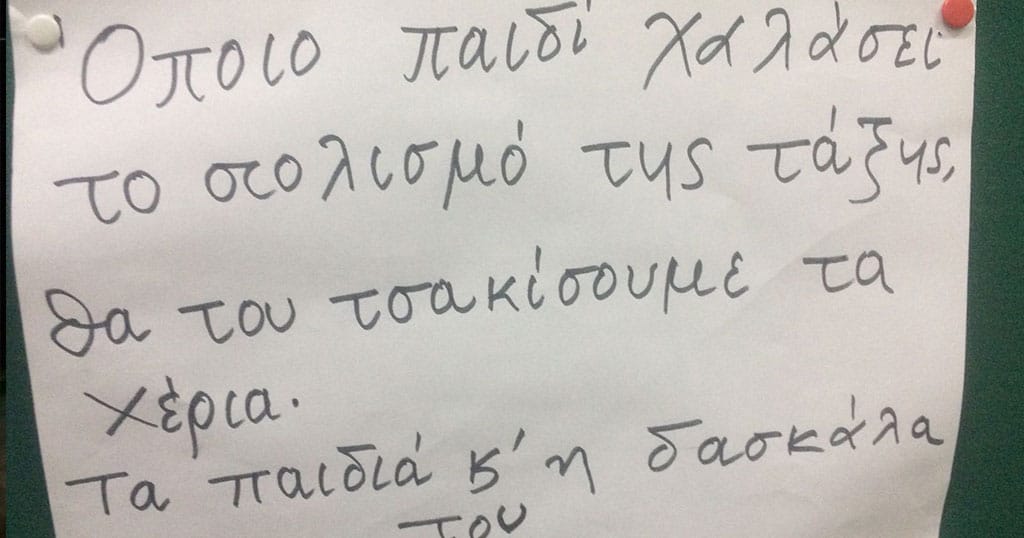 Οποιο παιδί χαλάσει
το στολισμό της τάξης,
θα του τσακίσουμε τα
χέρια.
Τα παιδιά κ' η δασκάλα
του